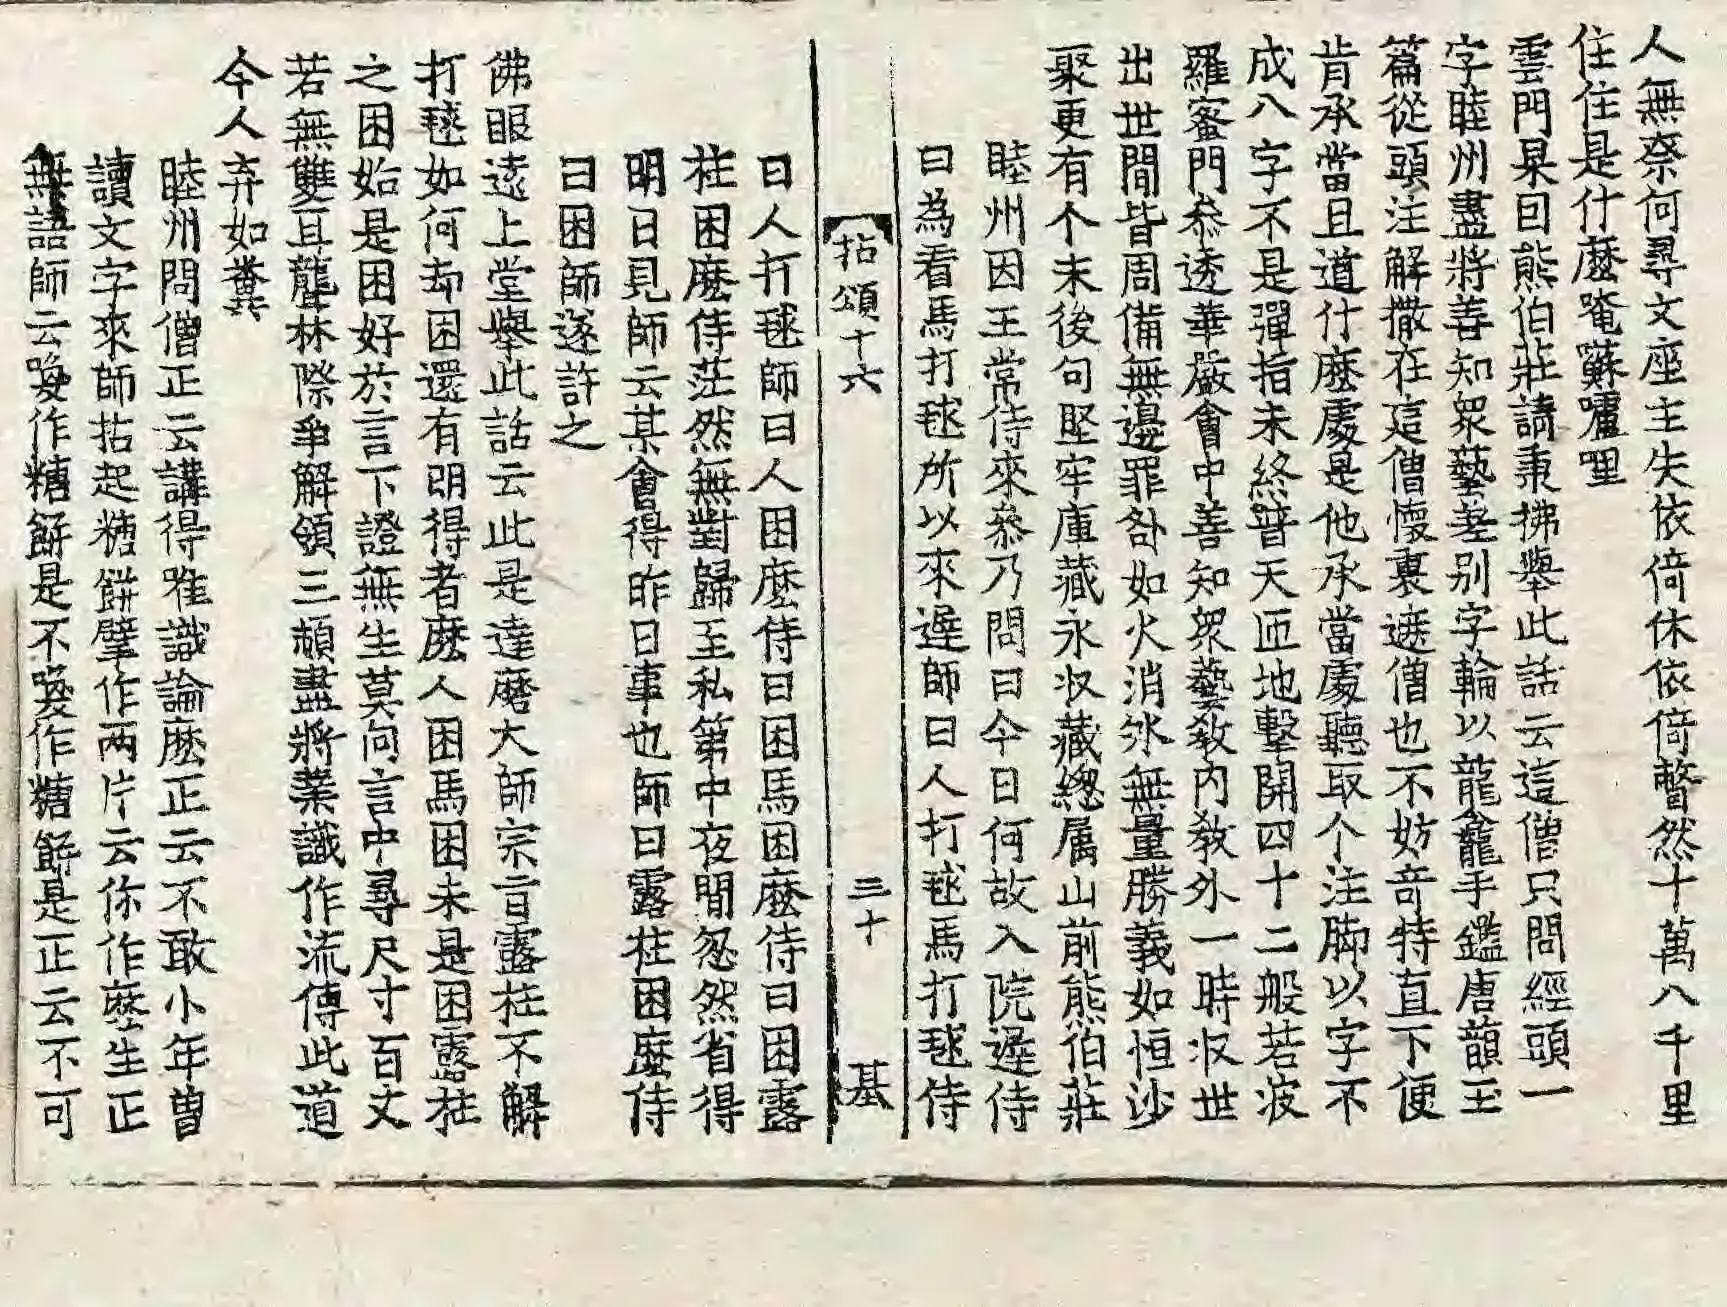 人無奈何尋文座主失依倚休依倚瞥然十萬八千里
住住是什麼唵蘇嚧哩
雲門杲曰熊伯莊請秉拂舉此話云這僧只問經頭一
字睦州盡將善知衆藝差别字輪以龍龕手鑑唐韻玉
篇從頭注解撒在這僧懷裏遮僧也不妨竒特直下便
肯承當且道什麼處是他承當處聽取个注脚以字不
成八字不是彈指未終普天匝地擊開四十二般若波
羅蜜門叅透華嚴會中善知衆藝教内教外一時収世
出世間皆周備無邊罪咎如火消氷無量勝義如恒沙
聚更有个末後句堅牢庫藏永収藏緫属山前熊伯莊
睦州因王常侍來叅乃問曰今日何故入院遲侍
曰為看馬打毬所以來遲師曰人打毬馬打毬侍
拈頌十六 三十 基
曰人打毬師曰人困麽侍曰困馬困麽侍曰困露
柱困麽侍茫然無對歸至私第中夜間忽然省得
明日見師云某會得昨日事也師曰露柱困麽侍
曰困師遂許之
佛眼遠上堂舉此話云此是達磨大師宗旨露柱不解
打毬如何却困還有明得者麽人困馬困未是困露柱
之困始是困好於言下證無生莫向言中尋尺寸百丈
若無雙耳聾林際爭解領三頓盡將業識作流傳此道
今人弃如糞
睦州問僧正云講得唯識論麽正云不敢小年曽
讀文字來師拈起糖餅擘作兩片云你作麽生正
無語師云喚作糖餅是不喚作糖餅是正云不可